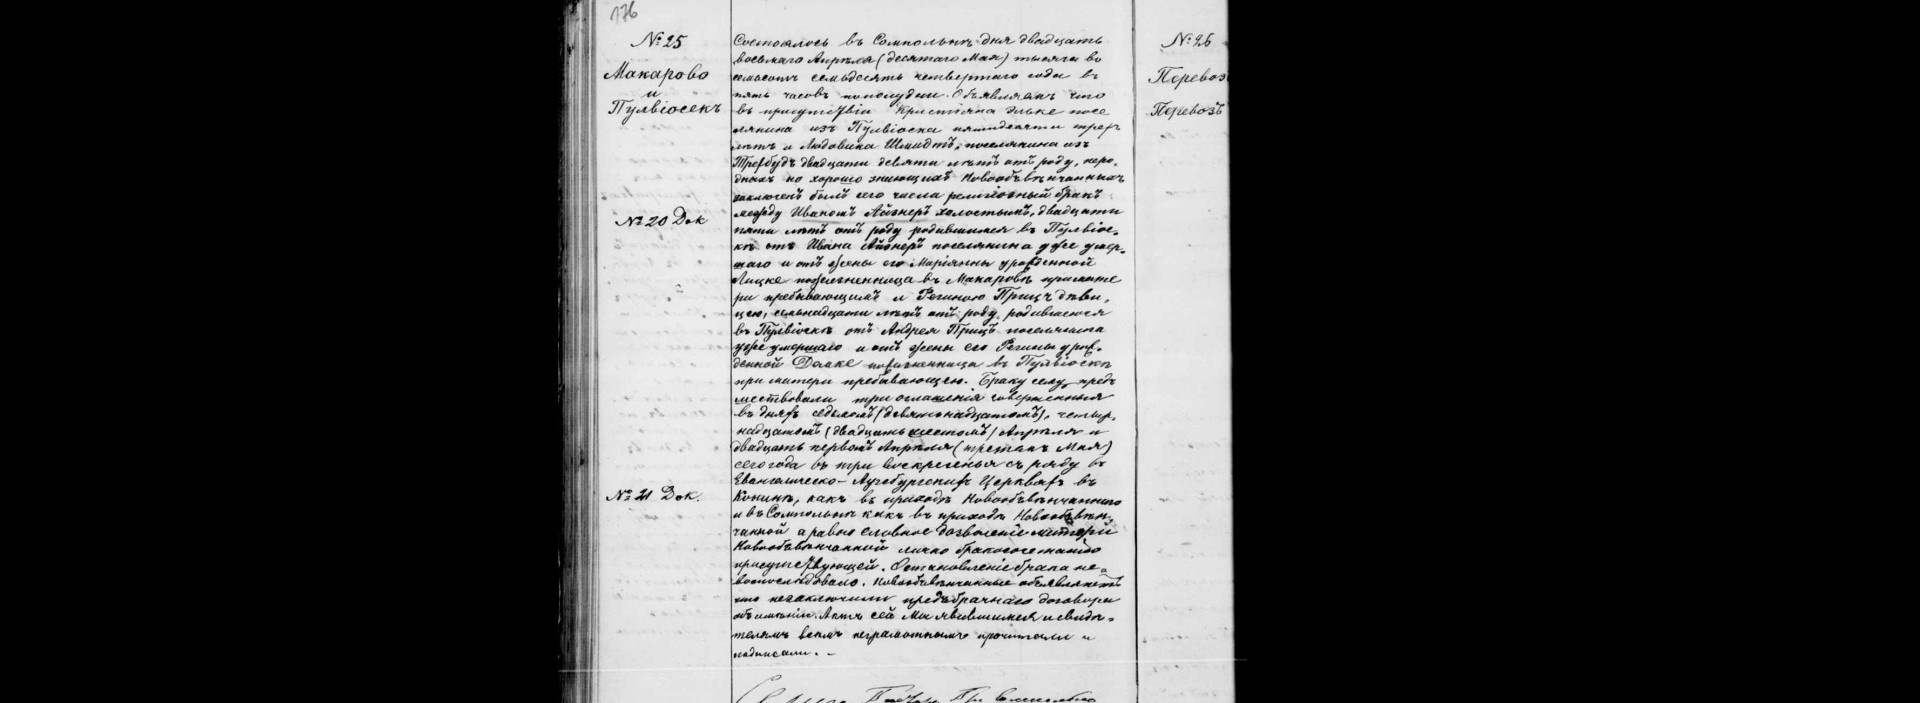 176
№ 25
Макарово
и
Пулвіосекъ
Состоялось въ Сомпольнѣ дня двадцать
восьмаго Апрѣля (десятаго Мая) тысяча во
семьсотъ семьдесятъ четвертаго года въ
пять часовъ пополудни. Объявляемъ что
въ присутствіи Кристіяна Эльке посе
лянина изъ Пулвіоска пятидесяти трехъ
лѣтъ и Людовика Шмидтъ, поселянина изъ
двадцати девяти лѣтъ отъ роду,
но хорошо знающихъ Новообвѣнчанныхъ
заключенъ былъ сего числа религіозный бракъ
между Иваномъ Айзнеръ холостымъ, двадцати
пяти лѣтъ отъ роду родившимся въ Пулвіос-
кѣ отъ Ивана Айзнеръ поселянина уже умер-
шаго и отъ жены его Маріянны урожденной
Лицке въ Макаровѣ примате
ри пребывающимъ и Региною Прицъ дѣви-
цею, семьнадцати лѣтъ отъ роду, родившеюся
въ Пулвіоскѣ отъ Андрея Прицъ поселянина
уже умершаго и отъ жены его Регины урож-
денной въ Пулвіоскѣ
при матери пребывающею. Браку сему пред
шествовали три оглашенія совершенныя
въ дняхъ седьмомъ (девятьнадцатомъ), четыр-
надцатомъ (двадцать шестомъ) Апрѣля и
двадцать первомъ Апрѣля (третьемъ Мая)
сего года въ три воскресенья съ ряду въ
Евангелическо-Аугсбургскихъ Церквахъ въ
Конинѣ, какъ въ приходѣ Новообвѣнчаннаго
и въ Сомпольнѣ какъ въ приходѣ Новообвѣн-
чанной а равно словное дозволеніе матери
Новообвѣнчанной лично бракосочетанію
присутствующей. Остановленіе брака не
воспослѣдовало. Новообвѣнчанные объявляютъ
что незаключили предъбрачнаго договора
объ имѣніи. Актъ сей и свидѣ-
телямъ всѣмъ неграмотнымъ прочитали и
подписали. –
№ 20 Док
№ 21 Док.
№ 26
Перевоз
Перевозъ